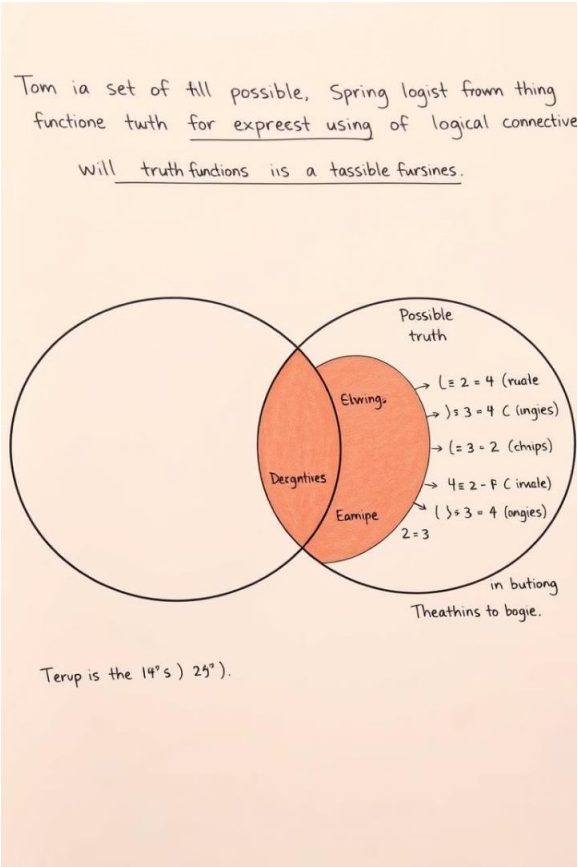 Tom ia set of till possible, Spring logist frown thing
functione twth for expreest using of logical connective
will truth functions iis a tassible fursines.
Possible
truth
Elwing.
(≡ 2 = 4 (ruale
)s 3 = 4 C (ingies)
(= 3 - 2 (chips)
Dergntives
4≡ 2 - F C imale)
Eamipe
( )s 3 = 4 (ongies)
2 = 3
in butiong
Theathins to bogie.
Terup is the 14's ) 25").